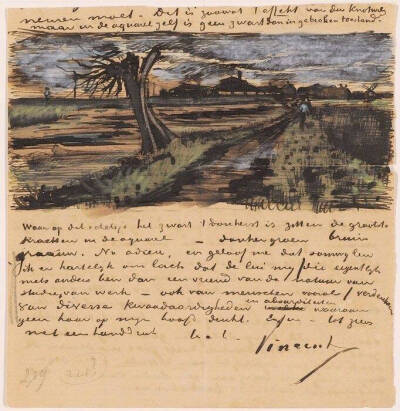 nemen moet. Dit is zoowat 't effekt van den Knotwilg
maar in de aquarel zelf is geen zwart dan in gebroken toestand.
Waar op dit schetsje het zwart 't donkerst is zitten de grootste
krachten in de aquarel — donkergroen bruin
graauw. Nu adieu, en geloof me dat somwijlen
ik er hartelijk om lach dat de lui mij (die eigentlijk
niets anders ben dan een vriend van de natuur van
studie van werk — ook van menschen vooral) verdenken
van diverse kwaadaardigheden en absurditeiten waaraan
geen haar op mijn hoofd denkt. Enfin — tot ziens
met een handdruk t. à t.
Vincent